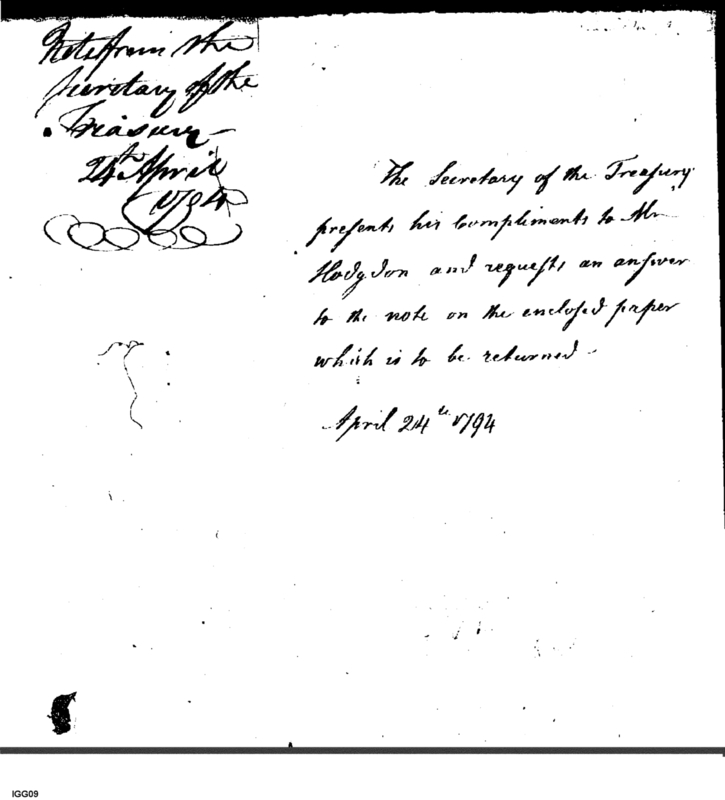 Note from the
Secretary of the
Treasury —
24th April
1794
The Secretary of the Treaſury
preſents his Compliments to Mr
Hodgdon and requeſts an anſwer
to the note on the encloſed paper
which is to be returned —
April 24th 1794
IGG09